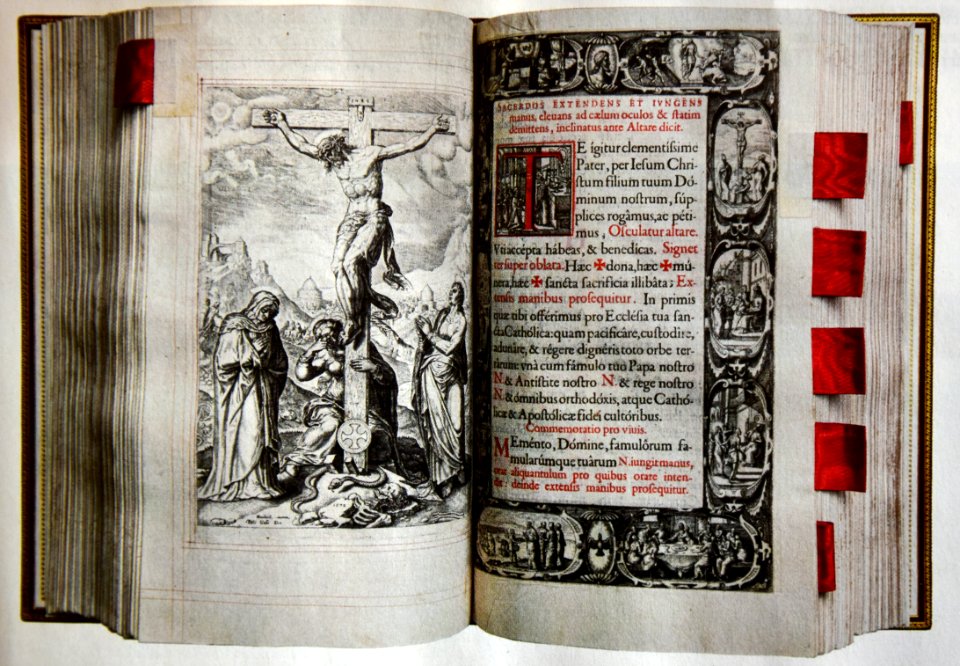 SACERDOS EXTENDENS ET IVNGENS
manus, eleuans ad cælum oculos & statim
demittens, inclinatus ante Altare dicit.
TE igitur clementissime
Pater, per Iesum Chri-
stum filium tuum Dó-
minum nostrum, súp-
plices rogámus, ac péti-
mus, Osculatur altare.
Vti accépta hábeas, & benedicas. Signet
ter super oblata. Hæc ✠ dona, hæc ✠ mú-
nera, hæc ✠ sancta sacrificia illibáta; Ex-
tensis manibus prosequitur. In primis
quæ tibi offérimus pro Ecclésia tua san-
cta Cathólica: quam pacificáre, custodíre,
adunáre, & régere dignéris toto orbe ter-
rárum: vnà cum fámulo tuo Papa nostro
N. & Antístite nostro N. & rege nostro
N. & ómnibus orthodóxis, atque Cathó-
licæ & Apostólicæ fidei cultóribus.
Commemoratio pro viuis.
MEménto, Dómine, famulórum fa-
mularúmque tuárum N. iungit manus,
orat aliquantulum pro quibus orare inten-
dit: deinde extensis manibus prosequitur.